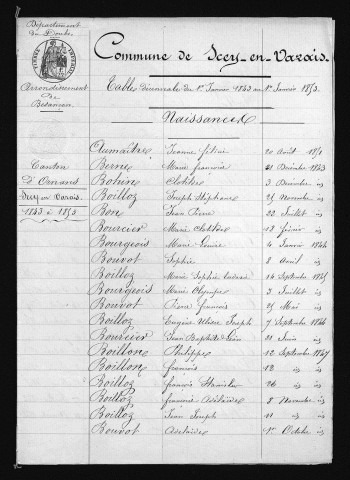 Département
du Doubs
Arrondissement
de
Besançon
Canton
d'Ornans
Scey en Varais
1843 à 1853
Commune de Scey-en-Varais.
Tables décennale du 1er Janvier 1843 au 1er Janvier 1853.
Naissances
Aumaitre Jeanne 20 Août 1851
Berne Marie francoise 21 Décembre 1843
Bohin Clotilde 3 Décembre id
Boillot Joseph Stéphane 25 Novembre id
Bon Jean Pierre 22 Juillet id
Bourcier Marie Clotilde 13 Février id
Bourgeois Marie Louise 4 Janvier 1844
Bouvot Sophie 8 Avril id
Boilloz Marie Sophie 14 Septembre 1845
Bourgeois Marie Olympe 3 Juillet id
Bouvot Pierre francois 25 Mai id
Boilloz Eugène Joseph 7 Septembre 1846
Bourcier Jean Baptiste 21 Juin id
Boillon Philippe 12 Septembre 1847
Boillon francois 12 id id
Boilloz francois Stanislas 26 id id
Boilloz francoise Adelaïde 8 Novembre id
Boilloz Jean Joseph 11 id id
Bouvot Adelaïde 1er Octobre id